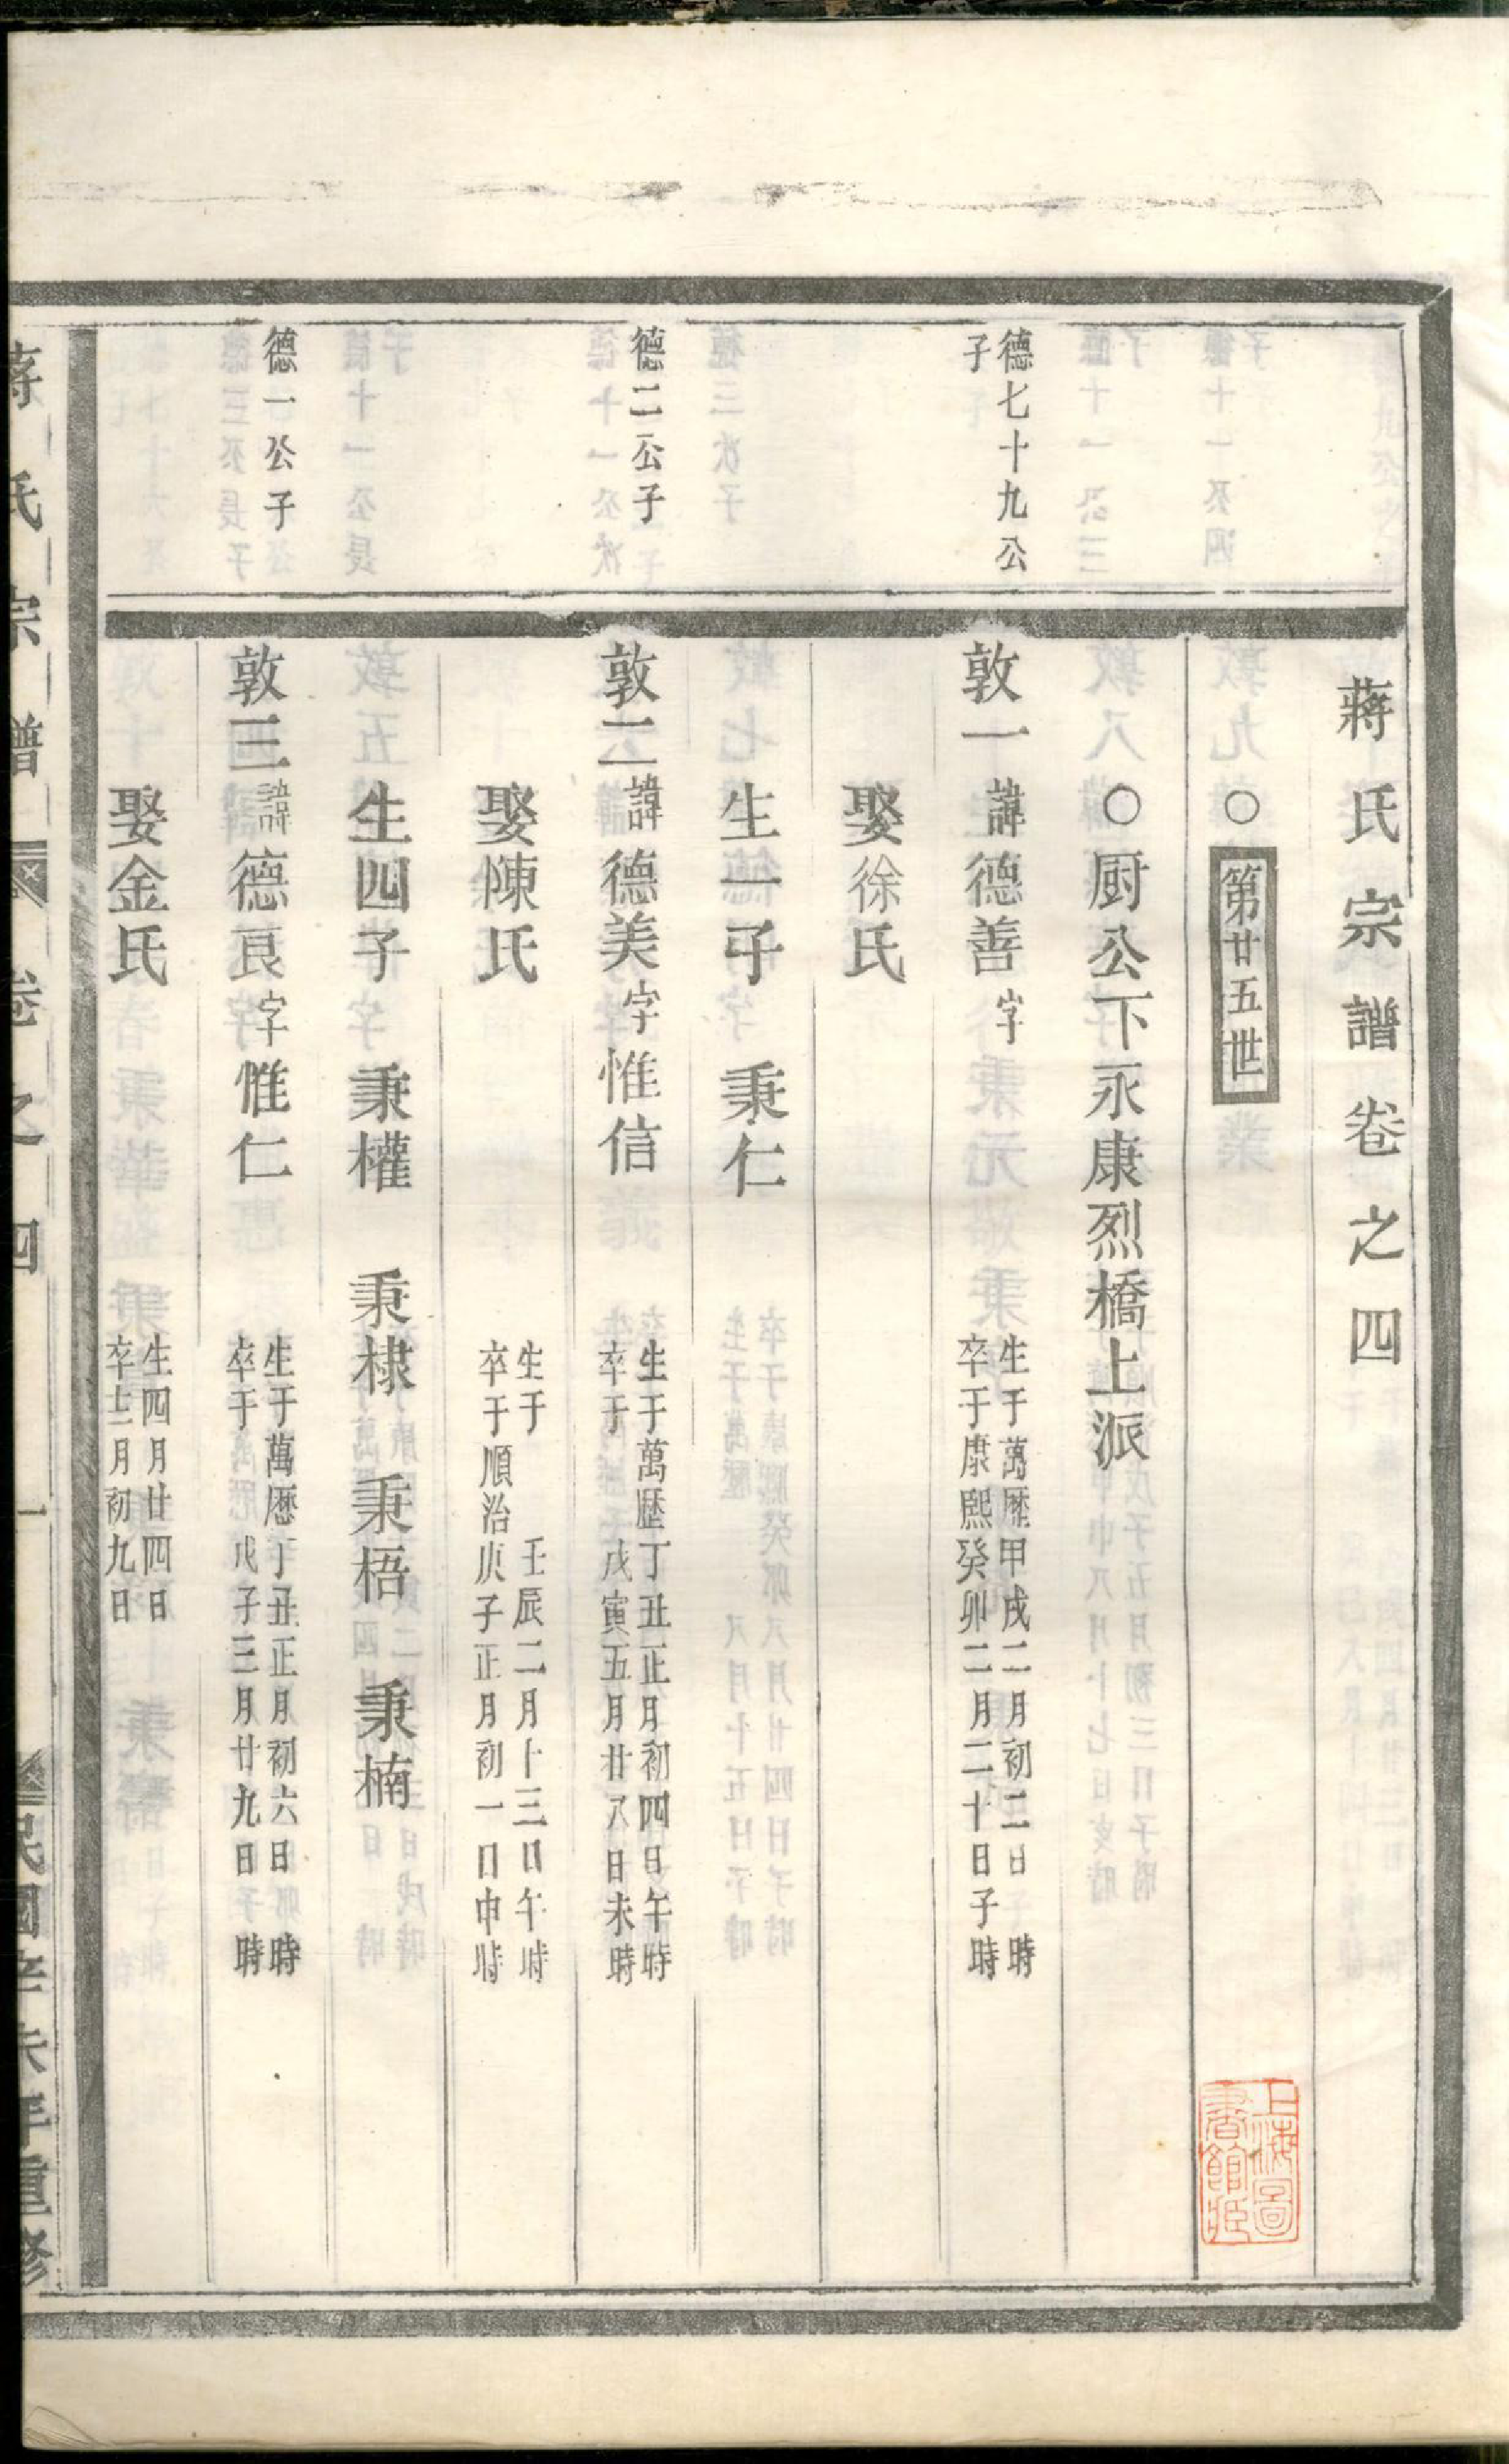 蔣氏宗譜卷之四
○第廿五世
○厨公下永康烈橋上派
德七十九公
子
敦一諱德善字
生于萬歷甲戌二月初二日時
卒于康熙癸卯二月二十日子時
娶徐氏
生一子秉仁
德二公子
敦二諱德美字惟信
生于萬歷丁丑正月初四日午時
卒于戊寅五月廿八日未時
娶陳氏
生于壬辰二月十三日午時
卒于順治庚子正月初一日申時
生四子秉權秉棣秉梧秉楠
德一公子
敦三諱德良字惟仁
生于萬歷丁丑正月初六日時
卒于戊子三月廿九日時
娶金氏
生四月廿四日
卒十二月初九日
蔣氏宗譜卷之四一民國辛未年重修
上海圖
書館藏